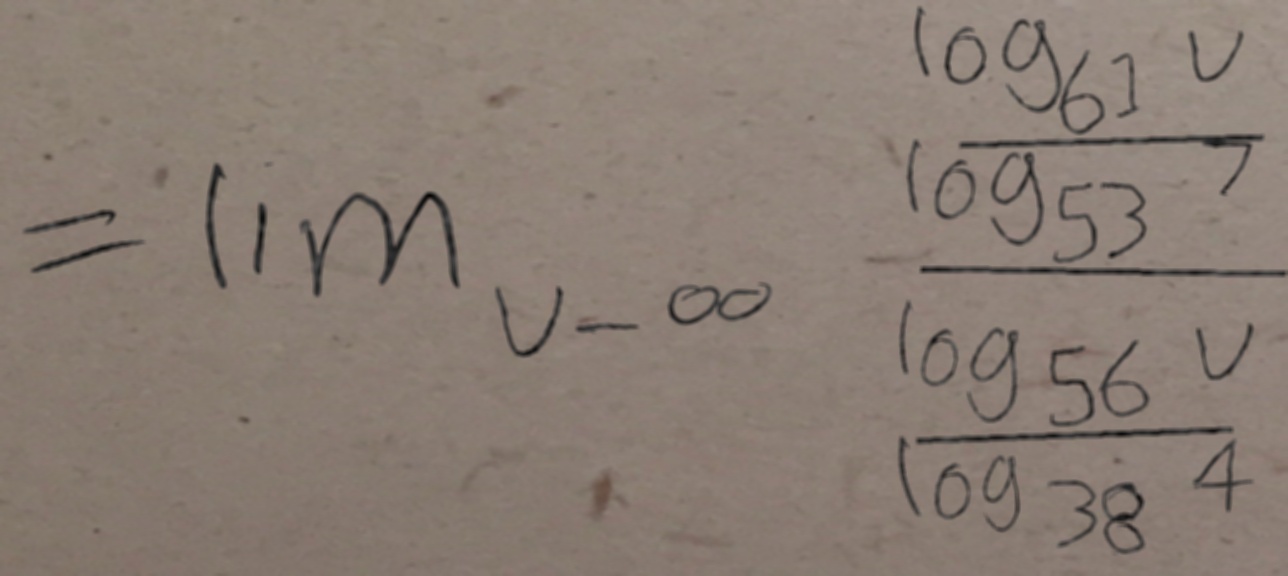 = lim_{v - ∞} \frac{\frac{log_{61} v}{log_{53} 7}}{\frac{log_{56} v}{log_{38} 4}}